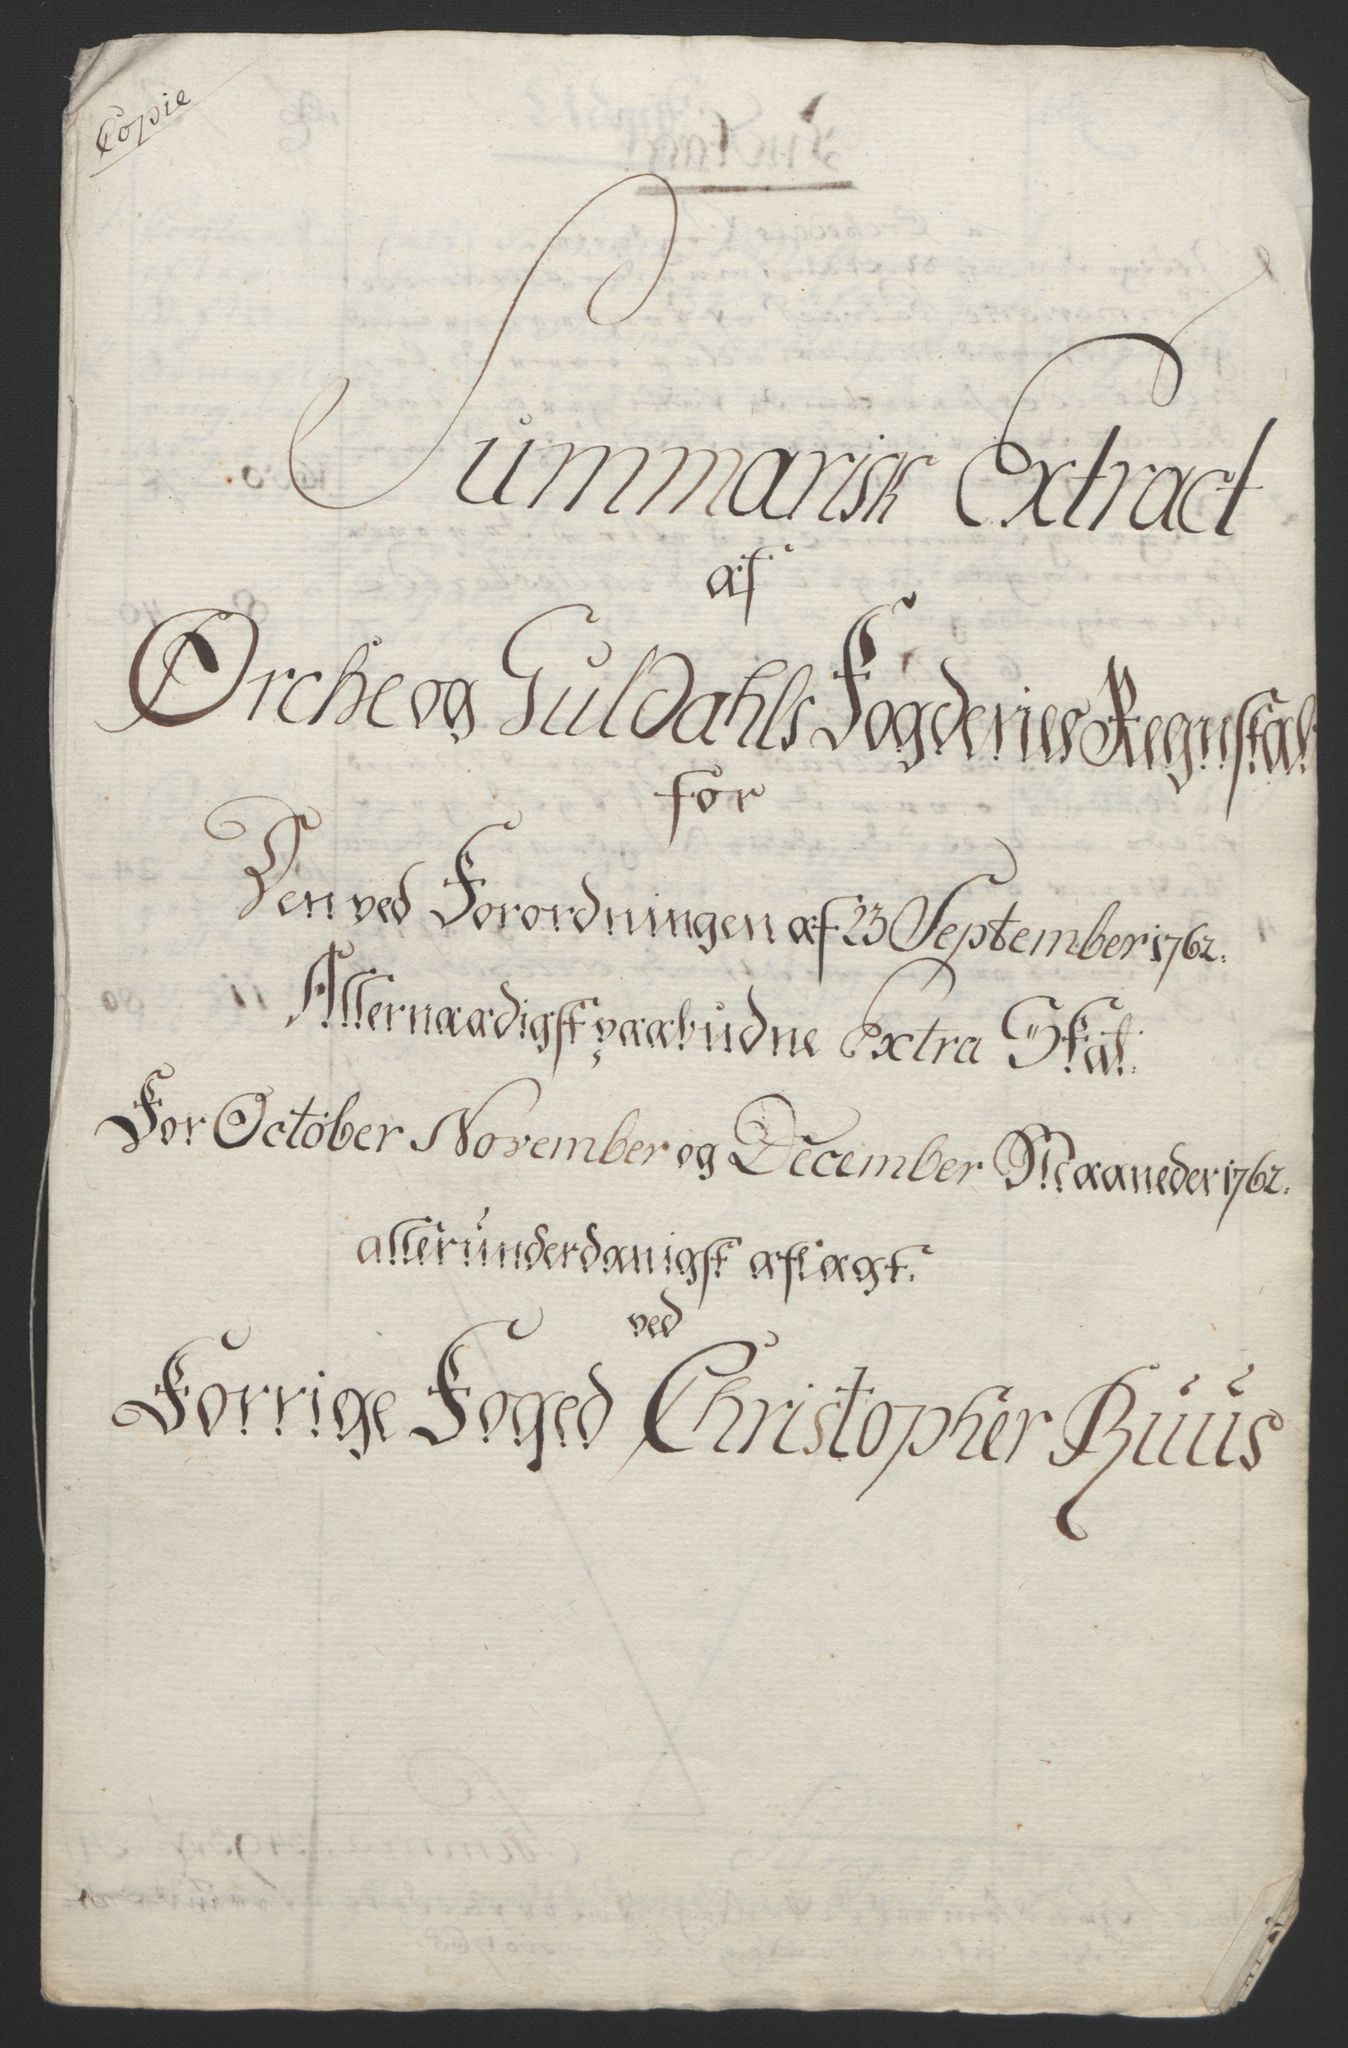 Copie
Summarisk Extract
af
Orche og Guldahls Fogderies Regnskab
for
Den ved Forordningen af 23 September 1762.
Allernaadigst paabudne Extra Skat.
For October November og December Maaneder 1762.
allerunderdanigst aflagt.
ved
Forrige Foged Christopher Ruus